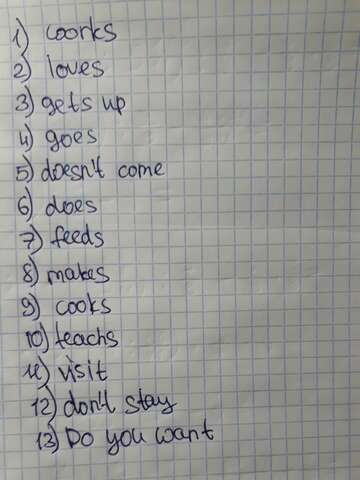 1) works
2) loves
3) gets up
4) goes
5) doesn't come
6) does
7) feeds
8) makes
9) cooks
10) teachs
11) visit
12) don't stay
13) Do you want